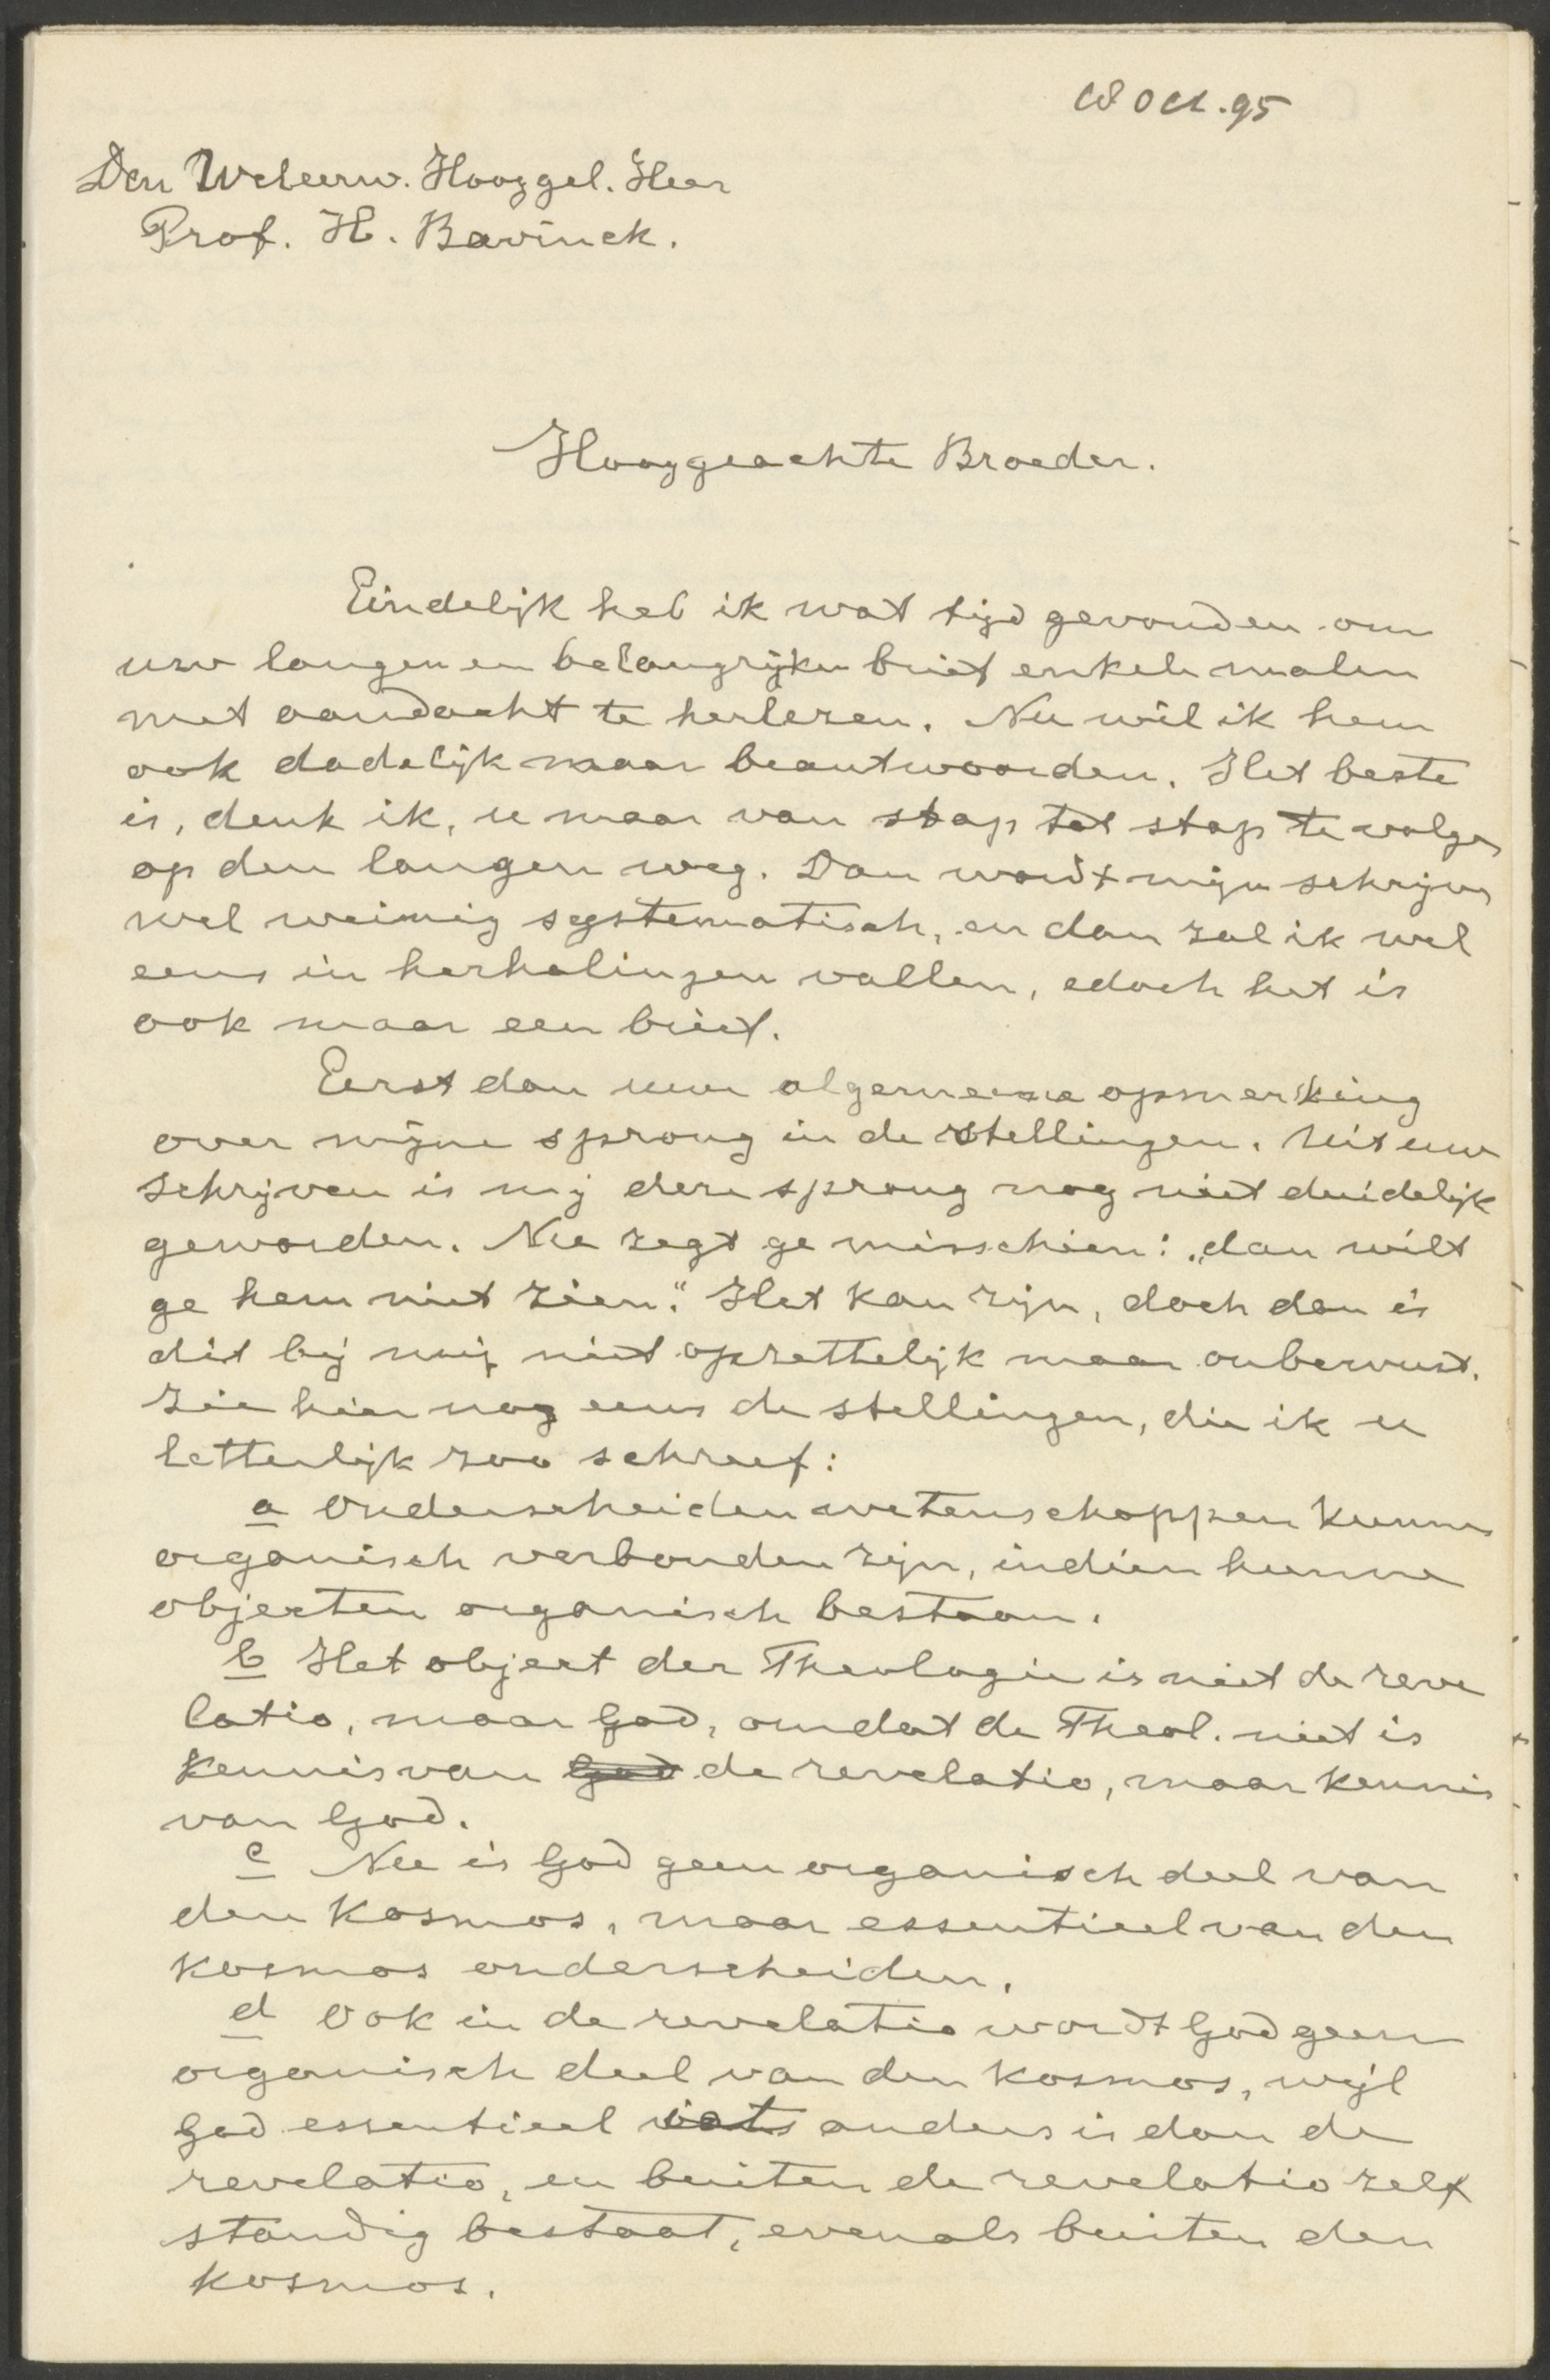 Oct. 95
Den Weleerw. Hooggel. Heer
Prof. H. Bavinck.
Hooggeachte Broeder.
Eindelijk heb ik wat tijd gevonden om
uw langen en belangrijken brief enkele malen
met aandacht te herlezen. Nu wil ik hem
ook dadelijk maar beantwoorden. Het beste
is, denk ik, u maar van stap tot stap te volgen
op den langen weg. Dan wordt mijn schrijven
wel weinig systematisch, en dan zal ik wel
eens in herhalingen vallen, edoch het is
ook maar een brief.
Eerst dan uwe algemeene opmerking
over mijne sprong in de stellingen. Uit uw
schrijven is mij deze sprong nog niet duidelijk
geworden. Nu zegt ge misschien: „dan wilt
ge hem niet zien." Het kan zijn, doch dan is
dit bij mij niet opzettelijk maar onbewust.
Zie hier nog eens de stellingen, die ik u
letterlijk zoo schreef:
a Onderscheiden wetenschappen kunnen
organisch verbonden zijn, indien hunne
objecten organisch bestaan.
b Het object der Theologie is niet de reve
latio, maar God, omdat de Theol. niet is
kennis van God de revelatio, maar kennis
van God.
c Nu is God geen organisch deel van
den kosmos, maar essentieel van den
kosmos onderscheiden.
d Ook in de revelatio wordt God geen
organisch deel van den kosmos, wijl
God essentieel iets anders is dan de
revelatio, en buiten de revelatio zelf
standig bestaat, evenals buiten den
kosmos.